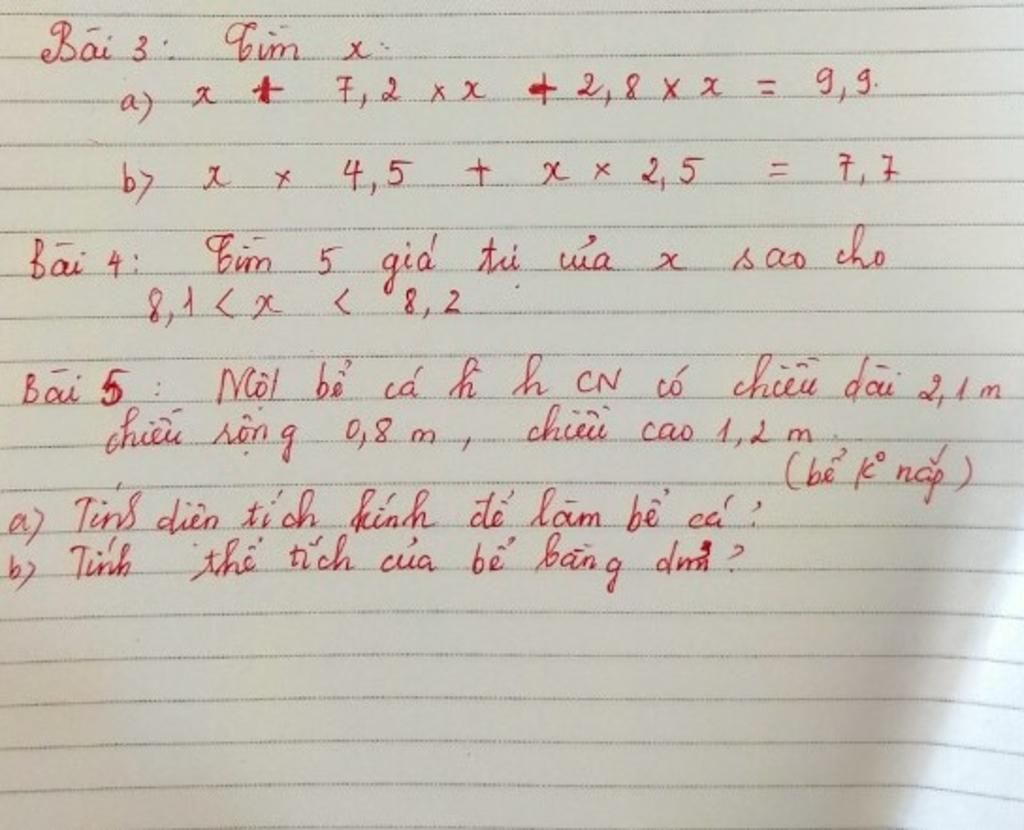 Bài 3: Tìm x:
a) x + 7,2 × x + 2,8 × x = 9,9.
b) x × 4,5 + x × 2,5 = 7,7
Bài 4: Tìm 5 giá trị của x sao cho
8,1 < x < 8,2
Bài 5: Một bể cá h h CN có chiều dài 2,1 m
chiều rộng 0,8 m, chiều cao 1,2 m.
(bể k° nắp)
a) Tính diện tích kính để làm bể cá?
b) Tính thể tích của bể bằng dm³?